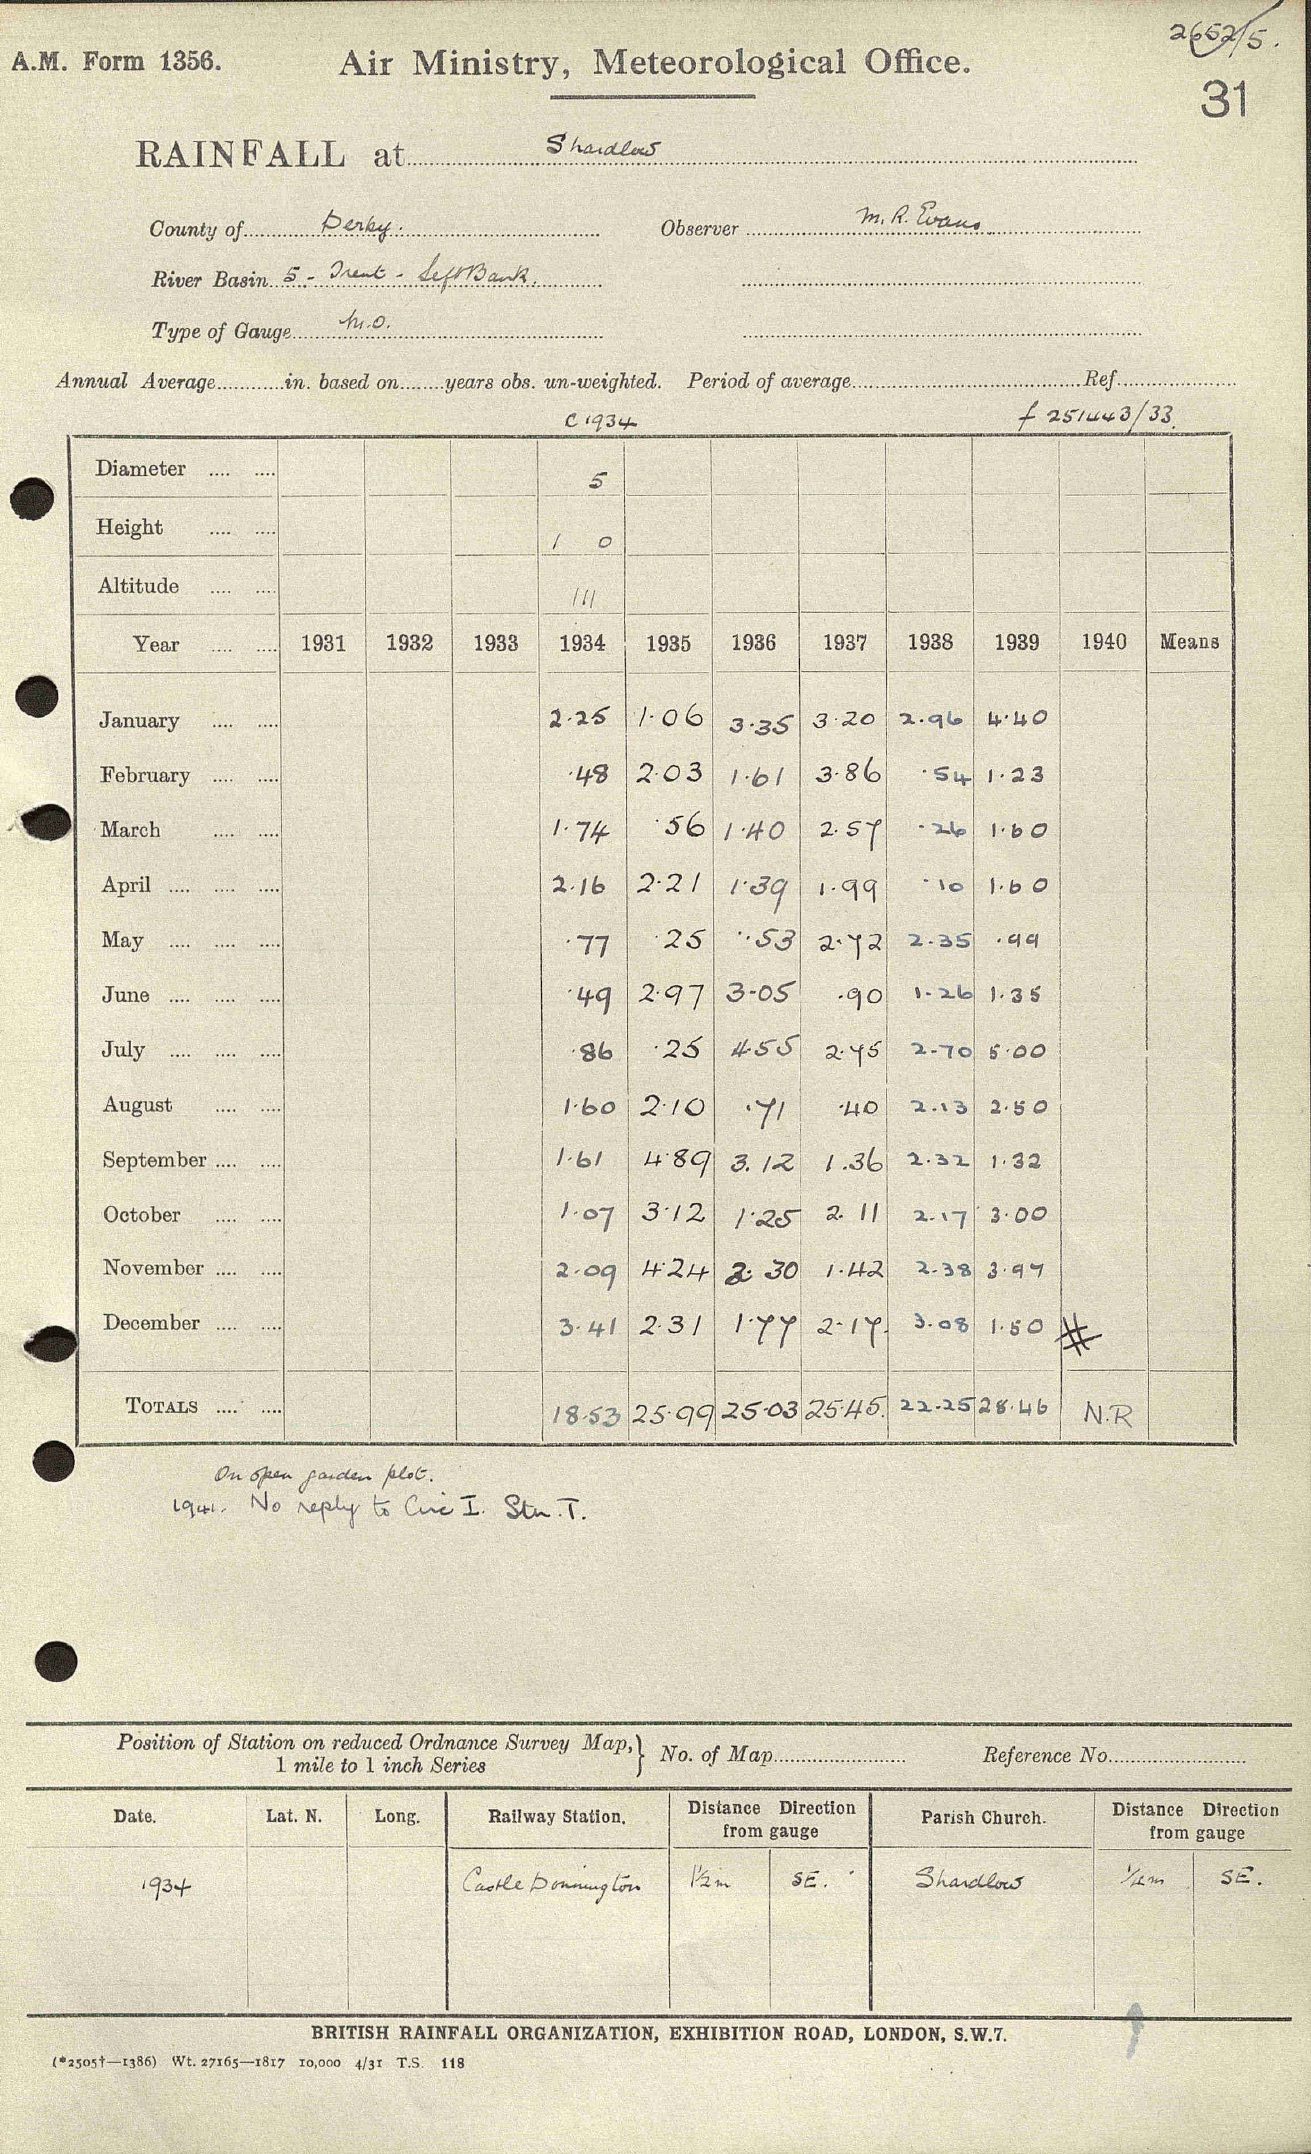 2652/5.
A.M. Form 1356.
Air Ministry, Meteorological Office.
31
RAINFALL at Shardlow
County of Derby. Observer M. R. Evans
River Basin 5 - Trent - Left Bank.
Type of Gauge M.O.
Annual Average in. based on years obs. un-weighted. Period of average Ref.
C 1934 f 251443/33.
Diameter 5
Height 1 0
Altitude 111
Year 1931 1932 1933 1934 1935 1936 1937 1938 1939 1940 Means
January 2.25 1.06 3.35 3.20 2.96 4.40
February .48 2.03 1.61 3.86 .54 1.23
March 1.74 .56 1.40 2.57 .26 1.60
April 2.16 2.21 1.39 1.99 .10 1.60
May .77 .25 .53 2.72 2.35 .99
June .49 2.97 3.05 .90 1.26 1.35
July .86 .25 4.55 2.75 2.70 5.00
August 1.60 2.10 .71 .40 2.13 2.50
September 1.61 4.89 3.12 1.36 2.32 1.32
October 1.07 3.12 1.25 2.11 2.17 3.00
November 2.09 4.24 2.30 1.42 2.38 3.97
December 3.41 2.31 1.77 2.17. 3.08 1.50 #
TOTALS 18.53 25.99 25.03 25.45. 22.25 28.46 N.R
On open garden plot.
1941. No reply to Circ I. Stn. T.
Position of Station on reduced Ordnance Survey Map, 1 mile to 1 inch Series } No. of Map Reference No.
Date. Lat. N. Long. Railway Station. Distance Direction from gauge Parish Church. Distance Direction from gauge
1934 Castle Donnington 1½m SE. Shardlow ¼m SE.
BRITISH RAINFALL ORGANIZATION, EXHIBITION ROAD, LONDON, S.W.7.
(*2505†—1386) Wt. 27165—1817 10,000 4/31 T.S. 118